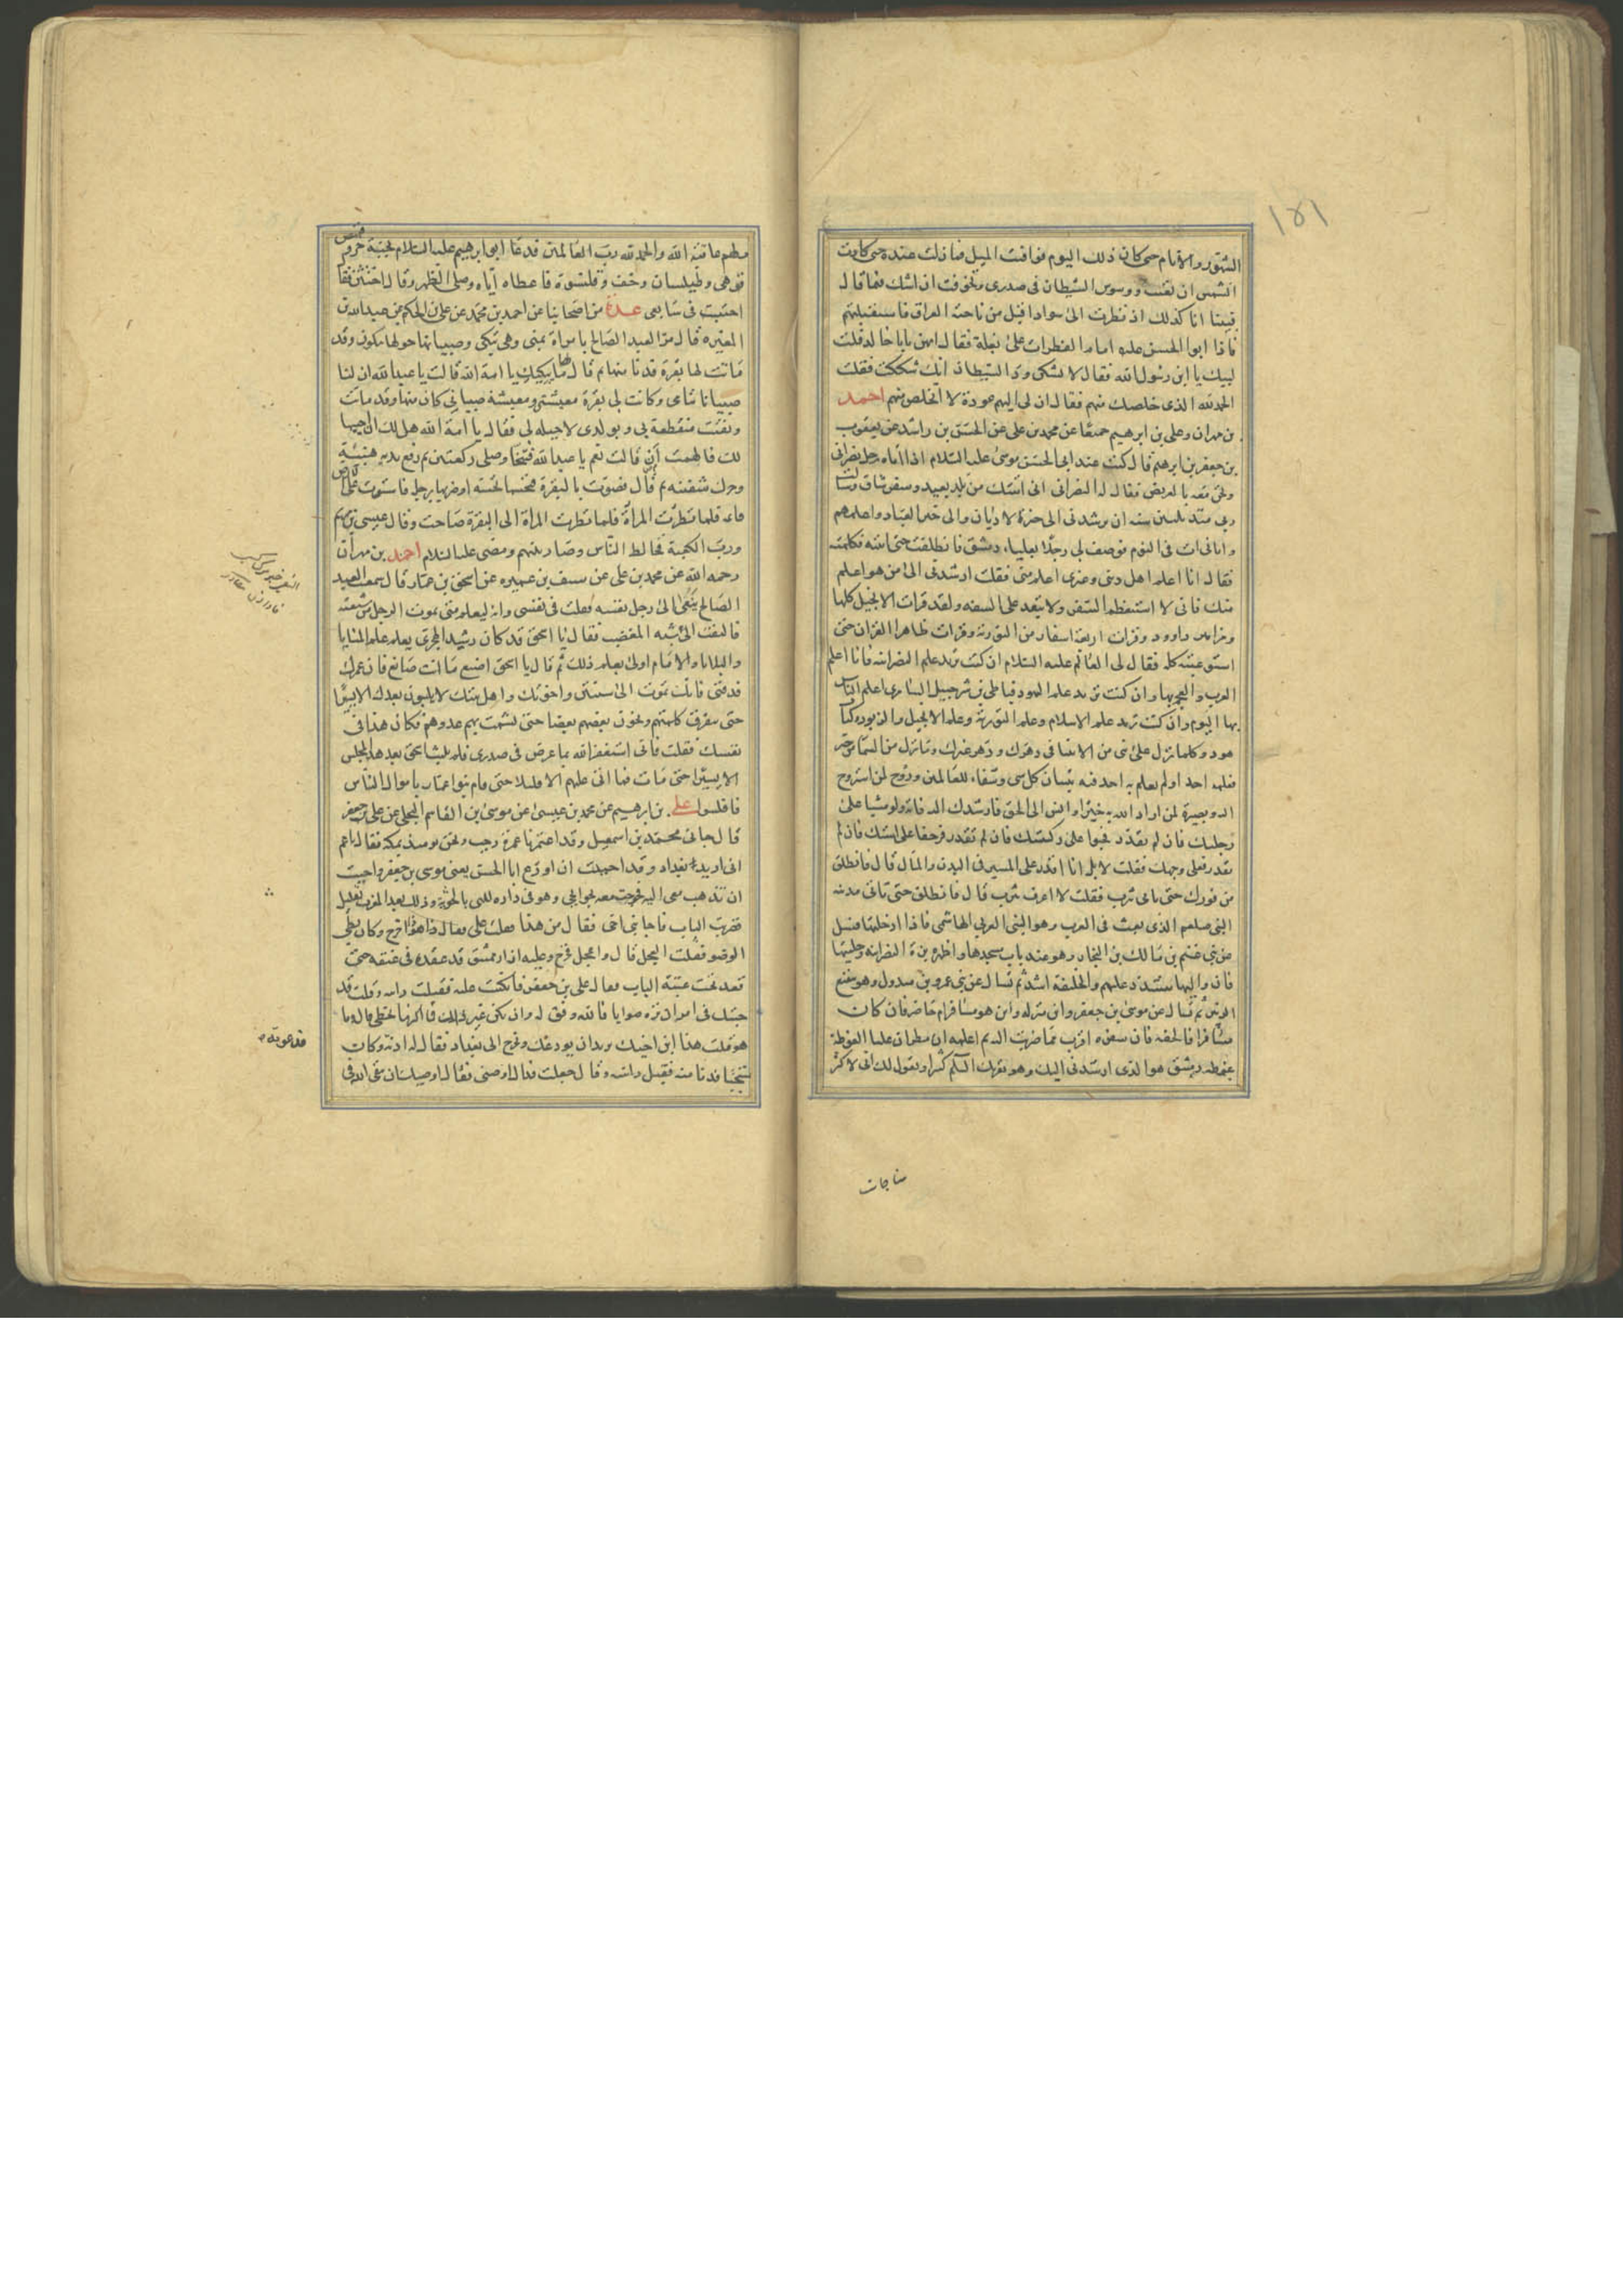 ١٥١
الشهور والايام حتى كان ذلك اليوم فوافيت الميل فما زلت عنده حتى كادت
الشمس ان تغيب ووسوس الشيطان في صدرى وتخوفت ان اشك فيما قال
فبينا انا كذلك اذ نظرت الى سواد اقبل من ناحية العراق فاستقبلتهم
فاذا ابو الحسن عليه امام القطرات على بغلة فقال ايهن يابا خالد قلت
لبيك يا ابن رسول الله فقال لا تشكن ود الشيطان انك شككت فقلت
الحمد لله الذى خلصك منهم فقال ان لى اليهم عودة لا اتخلص منهم احمد
بن مهران وعلى بن ابرهيم جميعا عن محمد بن على عن الحسن بن راشد عن يعقوب
بن جعفر بن ابرهيم قال كنت عند ابى الحسن موسى عليه السلام اذا اتاه رجل نصرانى
ونحن معه بالعريض فقال له النصرانى انى اتيتك من بلد بعيد وسفر شاق وسالت
ربى منذ ثلثين سنه ان يرشدنى الى خير الاديان والى خير العباد واعلمهم
واتانى ات فى النوم فوصف لى رجلا بعليا دمشق فانطلقت حتى اتيته فكلمته
فقال انا اعلم اهل دينى وغيرى اعلم منى فقلت ارشدنى الى من هو اعلم
منك فانى لا استعظم السفر ولا يبعد على الشقه ولقد قرات الانجيل كلها
ومزامير داوود وقرات اربعة اسفار من التورية وقرات ظاهر القران حتى
استوعبته كله فقال لى العالم عليه السلام ان كنت تريد علم النصرانية فانا اعلم
العرب والعجم بها وان كنت تريد علم اليهود فباطى بن شرحبيل السامرى اعلم الناس
بها اليوم وان كنت تريد علم الاسلام وعلم التورية وعلم الانجيل والزبور وكتاب
هود وكلما نزل على نبى من الانبيا فى دهرك ودهر غيرك وما نزل من السما من خبر
فعلمه احد او لم يعلم به احد فيه تبيان كل شى وشفاء للعالمين وروح لمن استروح
اليه وبصيرة لمن اراد الله به خيرا وانس الى الحق فارشدك اليه فاته ولو مشيا على
رجليك فان لم تقدر فحبوا على ركبتيك فان لم تقدر فزحفا على استك فان لم
تقدر فعلى وجهك فقلت لا بل انا اقدر على المسير فى البدن والمال قال فانطلق
من فورك حتى تاتى يثرب فقلت لا اعرف يثرب قال فانطلق حتى تاتى مدينه
النبى صلعم الذى بعث فى العرب وهو النبى العربى الهاشمى فاذا ادخلتها فسل
عن بنى غنم بن مالك بن النجار وهو عند باب مسجدها واظهر بزة النصرانيه وحليتها
فان واليها يتشدد عليهم والخليفة اشد ثم تسال عن بنى عمرو بن مبذول وهو ببقيع
الزبير ثم تسال عن موسى بن جعفر واين منزله واين هو مسافر ام حاضر فان كان
مسافرا فالحقه فان سفره اقرب مما ضربت اليه ثم اعلمه ان مطران عليا الغوطة
غوطه دمشق هو الذى ارشدنى اليك وهو يقرئك السلام كثيرا ويقول لك انى لاكثر
مناجات
قميص
مطهم عافيه الله والحمد لله رب العالمين فدعا ابو ابرهيم عليه السلام بجبة خز و
قوهى وطيلسان وخف وقلنسوة فاعطاه اياه وصلى الظهر وقال اختتن فقال
اختتنت فى سابعى عدة من اصحابنا عن احمد بن محمد عن على بن الحكم عن عبد الله بن
المغيره قال مر العبد الصالح بامراة بمنى وهى تبكى وصبيانها حولها يبكون وقد
ماتت لها بقرة فدنا منها ثم قال لها ما يبكيك يا امة الله قالت يا عبد الله ان لنا
صبيانا يتامى وكانت لى بقرة معيشتى ومعيشة صبيانى كان منها وقد ماتت
وبقيت منقطعة بى وبولدى لا حيله لى فقال يا امة الله هل لك ان احييها
لك فالهمت ان قالت نعم يا عبد الله فتنحا وصلى ركعتين ثم رفع يديه هنيئة
وحرك شفتيه ثم قام فصوت بالبقرة فنخسها نخسة او ضربها برجله فاستوت على الارض
قائمه فلما نظرت المراة فلما نظرت المراة الى البقرة صاحت وقال عيسى بن مريم
ورب الكعبة فخالط الناس وصار بينهم ومضى عليه السلام احمد بن مهران
رحمه الله عن محمد بن على عن سيف بن عميره عن اسحق بن عمار قال سمعت العبد
الصالح ينعى الى رجل نفسه فقلت فى نفسى وانه ليعلم متى يموت الرجل من شيعته
فالتفت الى شبه المغضب فقال يا اسحق قد كان رشيد الهجرى يعلم علم المنايا
والبلايا والامام اولى بعلم ذلك ثم قال يا اسحق اصنع ما انت صانع فان عمرك
قد فنى فانك تموت الى سنتين واخوتك واهل بيتك لا يلبثون بعدك الا يسيرا
حتى يتفرق كلمتهم ويخون بعضهم بعضا حتى يشمت بهم عدوهم فكان هذا فى
نفسك فقلت فانى استغفر الله بما عرض فى صدرى فلم يلبث اسحق بعد هذا المجلس
الا يسيرا حتى مات فما اتى عليهم الا قليلا حتى قام بنو عمار باموال الناس
فافلسوا على بن ابرهيم عن محمد بن عيسى عن موسى بن القاسم البجلى عن على بن جعفر
قال جانى محمد بن اسمعيل وقد اعتمرنا عمرة رجب ونحن يومئذ بمكه فقال يا عم
انى اريد بغداد وقد احببت ان اودع ابا الحسن يعنى موسى بن جعفر واحببت
ان تذهب معى اليه فخرجت معه نحو اخى وهو فى داره التى بالحوبة وذلك بعد المغرب بقليل
فضربت الباب فاجابنى اخى فقال من هذا فقلت على فقال هو ذا اخرج وكان بطى
الوضو فقلت العجل قال واعجل فخرج وعليه ازار ممشق قد عقده فى عنقه حتى
قعد تحت عتبة الباب فقال على بن جعفر فانكببت عليه فقبلت راسه وقلت قد
جئتك فى امر ان تره صوابا فالله وفق له وان يكن غير ذلك فما اكثر ما نخطى قال وما
هو قلت هذا ابن اخيك يريد ان يودعك ويخرج الى بغداد فقال له ادنه وكان
متنحيا فدنا منه فقبل راسه وقال جعلت فداك اوصنى فقال اوصيك ان تتقى الله فى
فدعوته